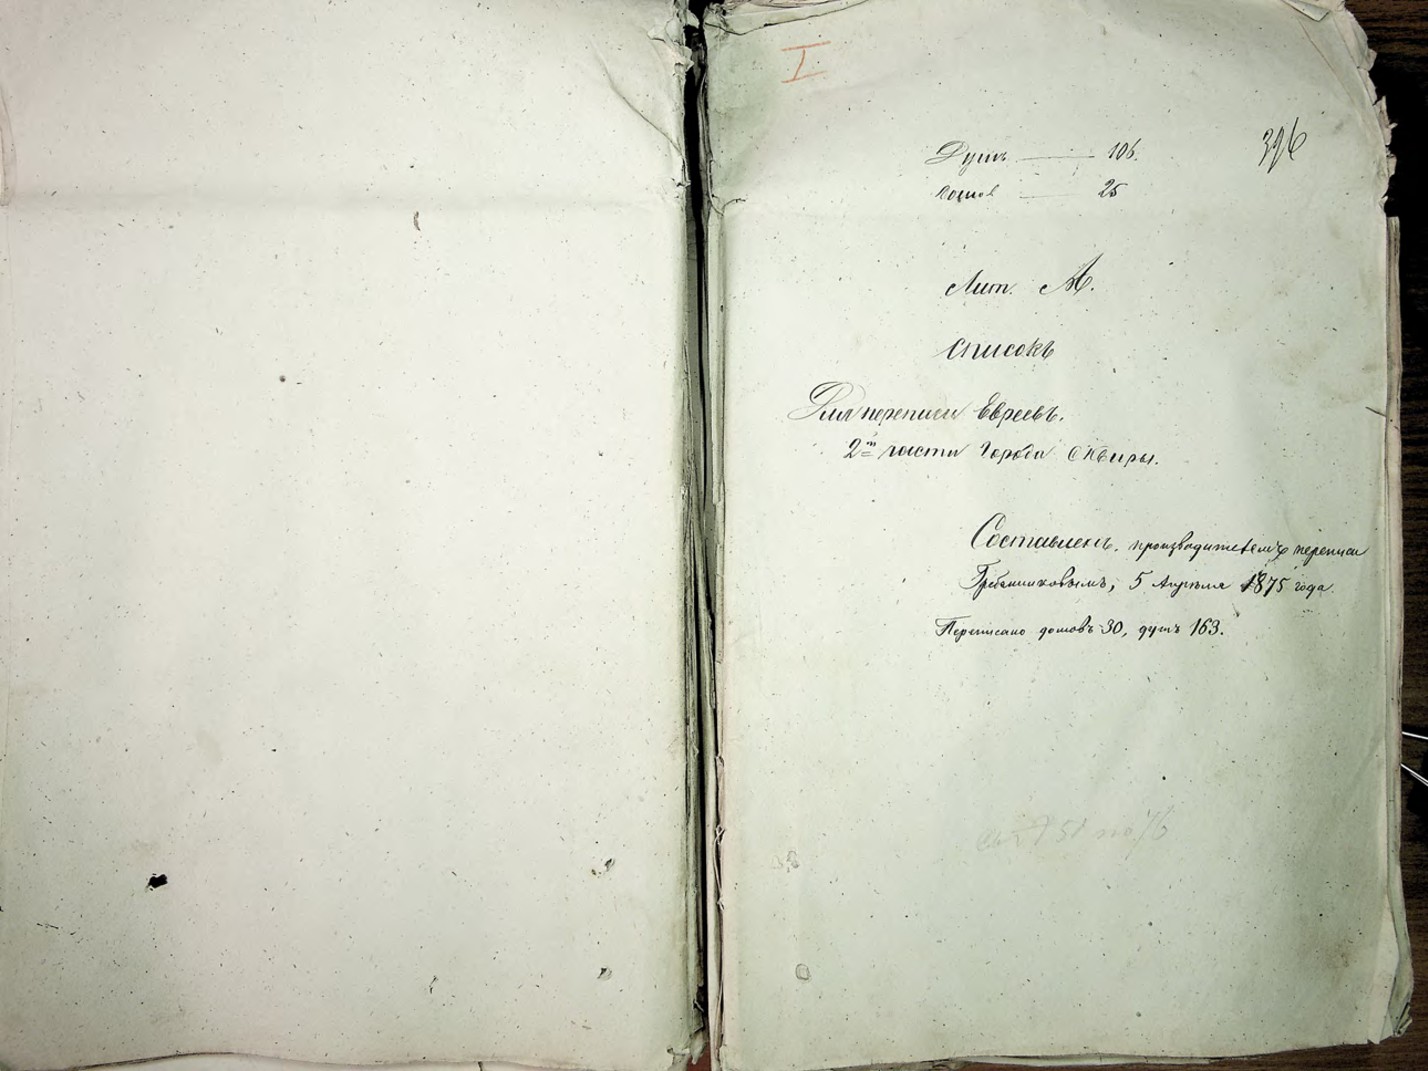 I
396
Душъ — 106.
домов — 25
Лит. А.
Списокъ
Для переписи Евреевъ.
2й части города Сквиры.
Составленъ, производителемъ переписи
Гребенниковымъ, 5 Апрѣля 1875 года.
Переписано домовъ 30, душъ 163.